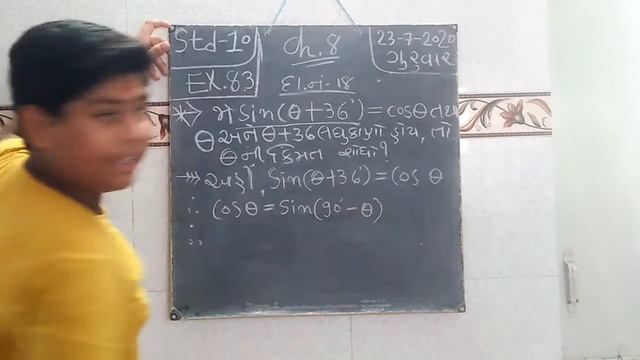 Std-10 Ch.8 23-7-2020
ગુરૂવાર
EX.8.3 દા.નં.-18
* જો sin(θ+36°) = cosθ તથા
θ અને θ+36 લઘુકોણો હોય, તો
θ ની કિંમત શોધો?
→ અહીં, sin(θ+36°) = cos θ
∴ cosθ = sin(90°-θ)